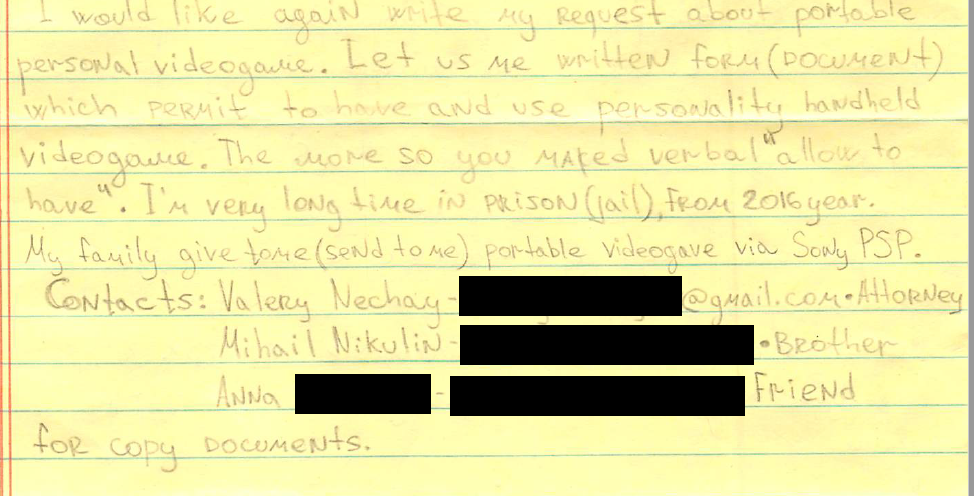 I would like again write my request about portable
personal videogame. Let us me written form (document)
which permit to have and use personality handheld
videogame. The more so you maked verbal "allow to
have". I'm very long time in prison (jail), from 2016 year.
My family give tome (send to me) portable videogave via Sony PSP.
Contacts: Valery Nechay - @gmail.com • Attorney
Mihail Nikulin - • Brother
Anna - Friend
for copy documents.